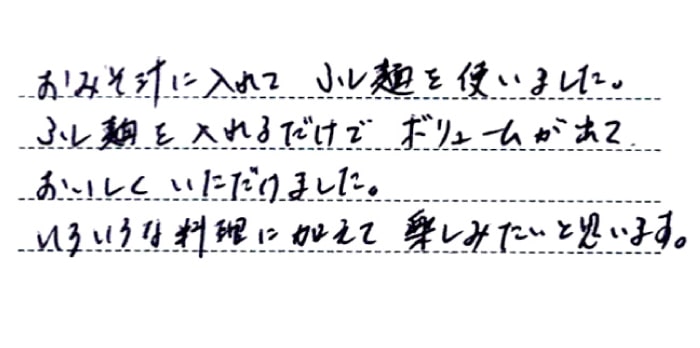 おみそ汁に入れて ふし麺を使いました。
ふし麺を入れるだけで ボリュームが出て
おいしくいただけました。
いろいろな料理に加えて 楽しみたいと思います。